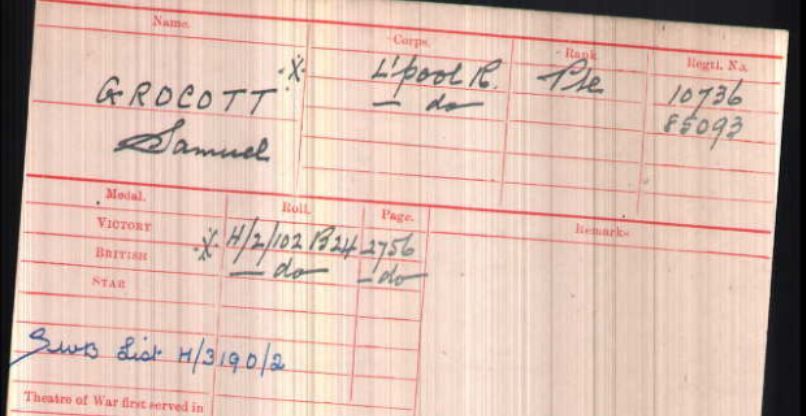 Name. Corps. Rank Regtl. No.
GROCOTT ·X· L'pool R. Pte 10736
— do — 85093
Samuel
Medal. Roll. Page. Remarks
VICTORY ·X· H/2/102 B24 2756
BRITISH — do — — do —
STAR
SWB List H/3190/2
Theatre of War first served in